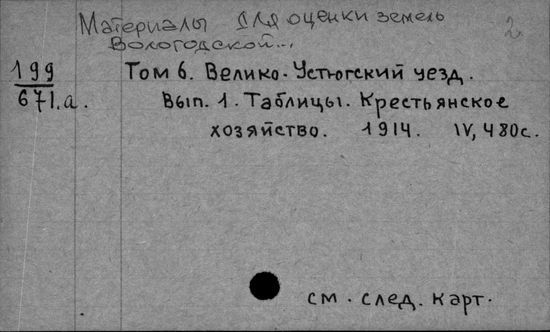 Материалы для оценки земель
Вологодской...
2
199
671.а.
Том 6. Велико-Устюгский уезд.
Вып. 1. Таблицы. Крестьянское
хозяйство. 1914. IV, 480с.
см. след. карт.